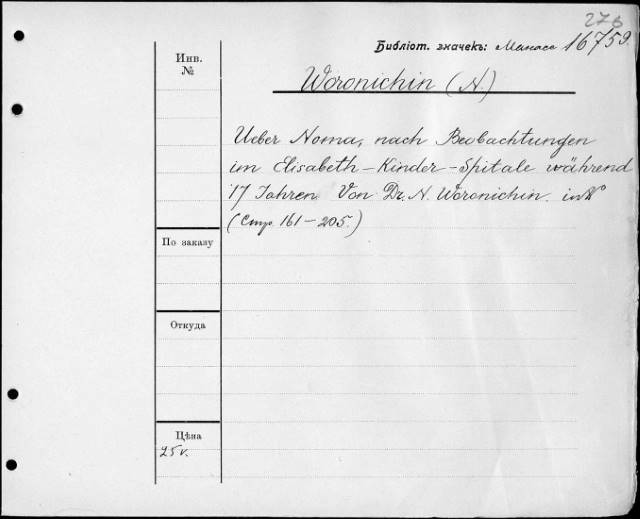 276
Библіот. значекъ: Манасс 16759.
Инв.
№
Woronichin (N.)
Ueber Noma, nach Beobachtungen
im Elisabeth-Kinder-Spitale während
17 Jahren. Von Dr. N. Woronichin.
(Стр. 161-205.)
По заказу
Откуда
Цѣна
25 к.